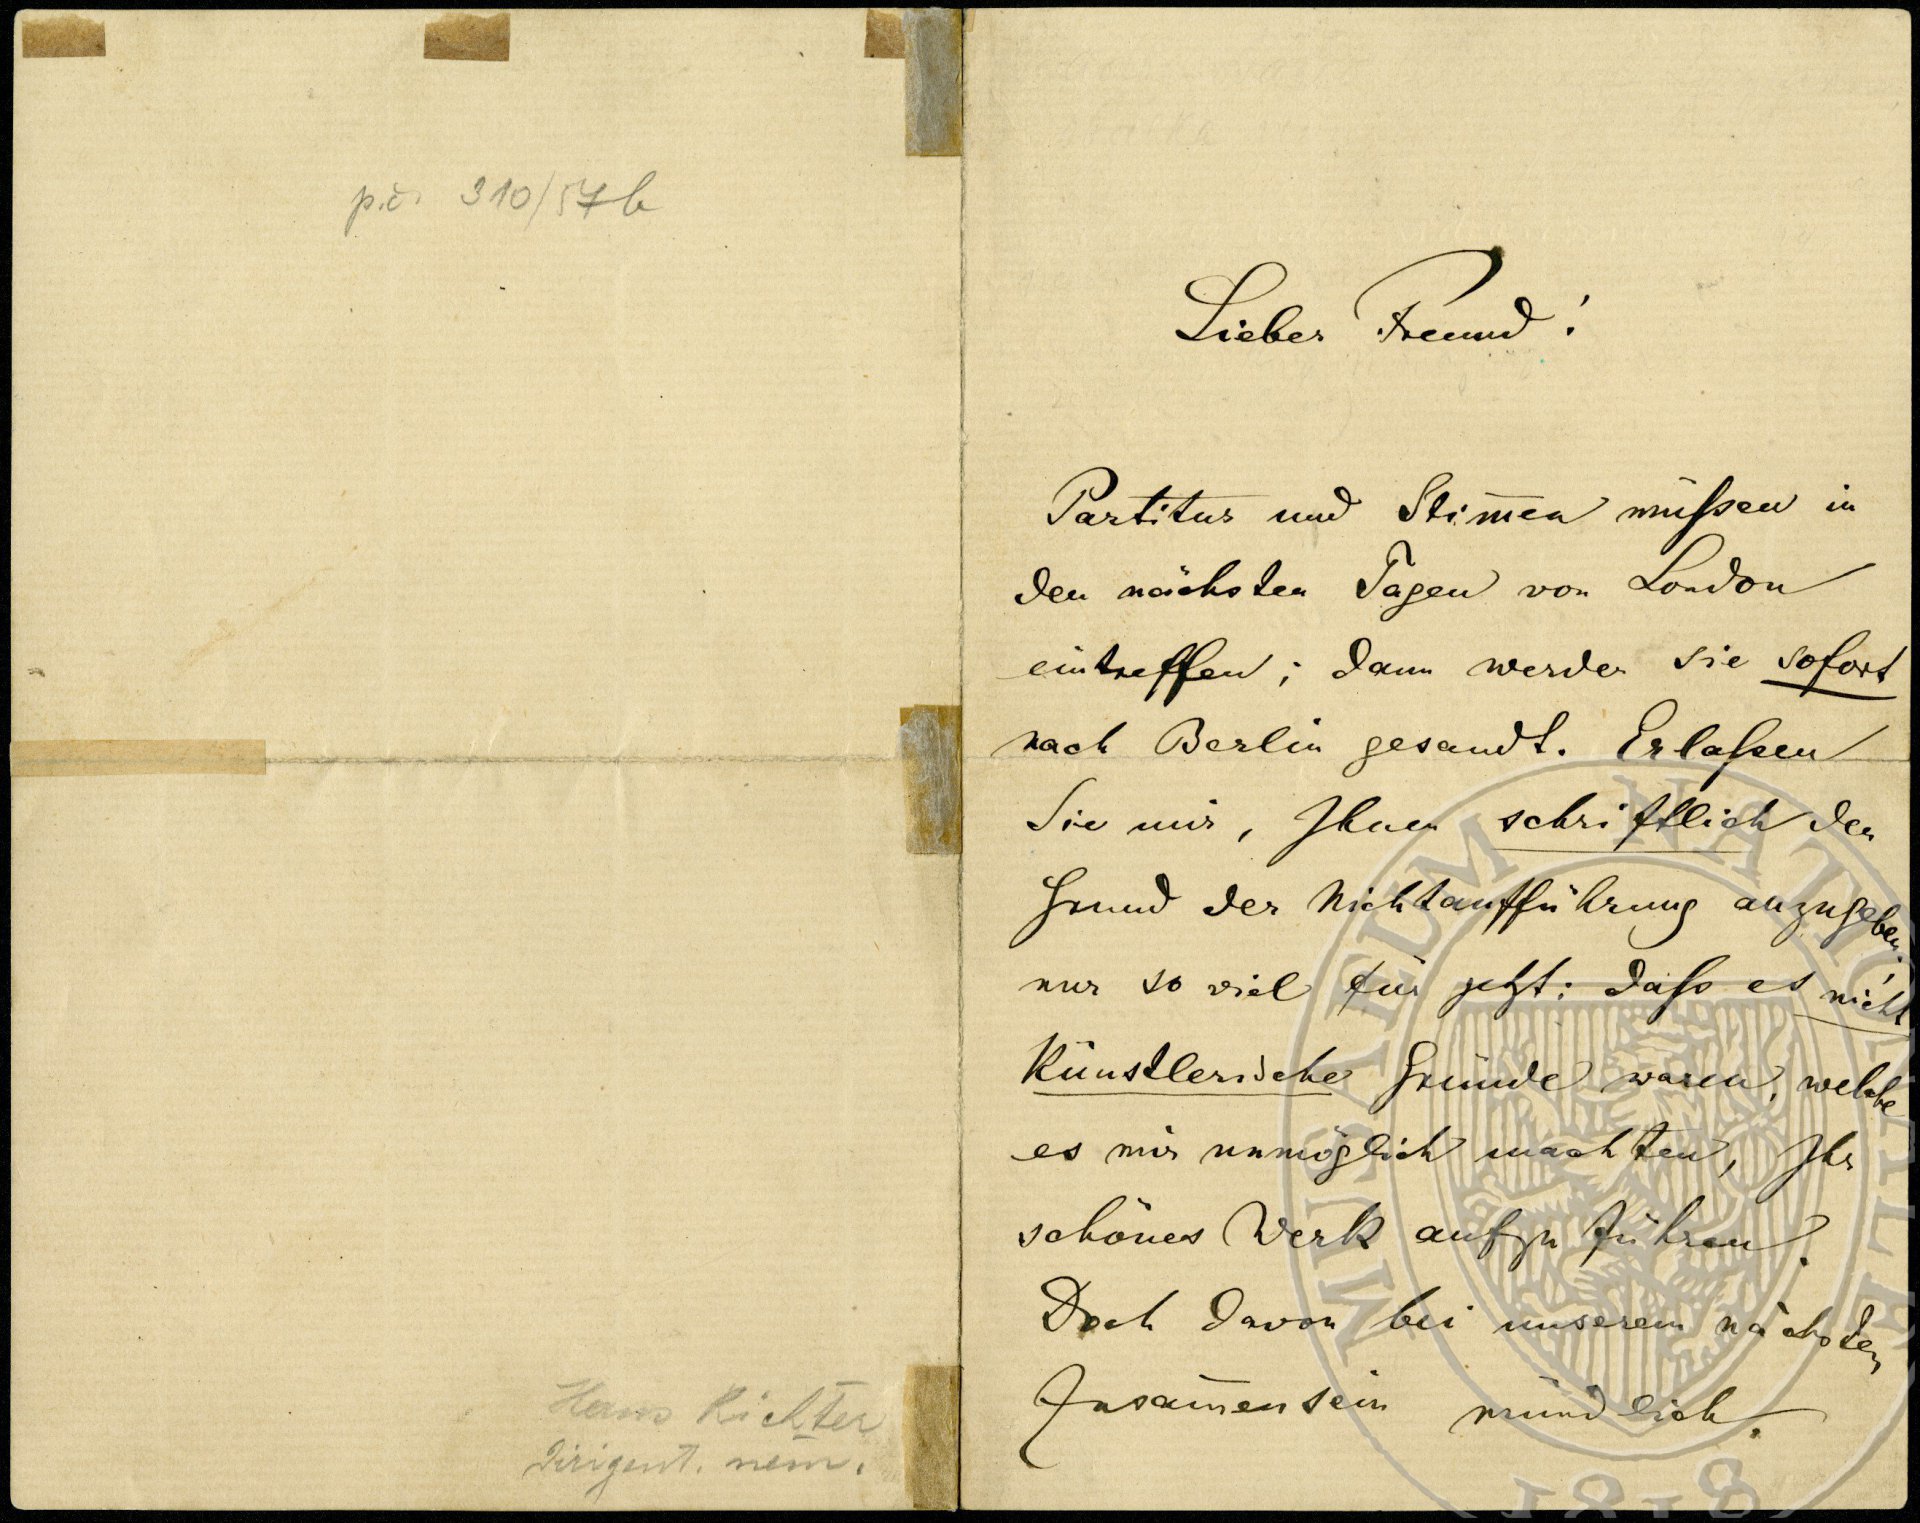 p.č. 310/57b
Hans Richter
Dirigent. něm.
Lieber Freund!
Partitur und Stim̄en müßen in
den nächsten Tagen von London
eintreffen; dann werden sie sofort
nach Berlin gesandt. Erlaßen
Sie mir, Ihnen schriftlich den
Grund der Nichtaufführung anzugeben;
nur so viel für jetzt: daß es nicht
künstlerische Gründe waren, welche
es mir unmöglich machten, Ihr
schönes Werk aufzuführen.
Doch davon bei unserem nächsten
Zusam̄ensein mündlich.
MUSAEUM NATIONALE
1818